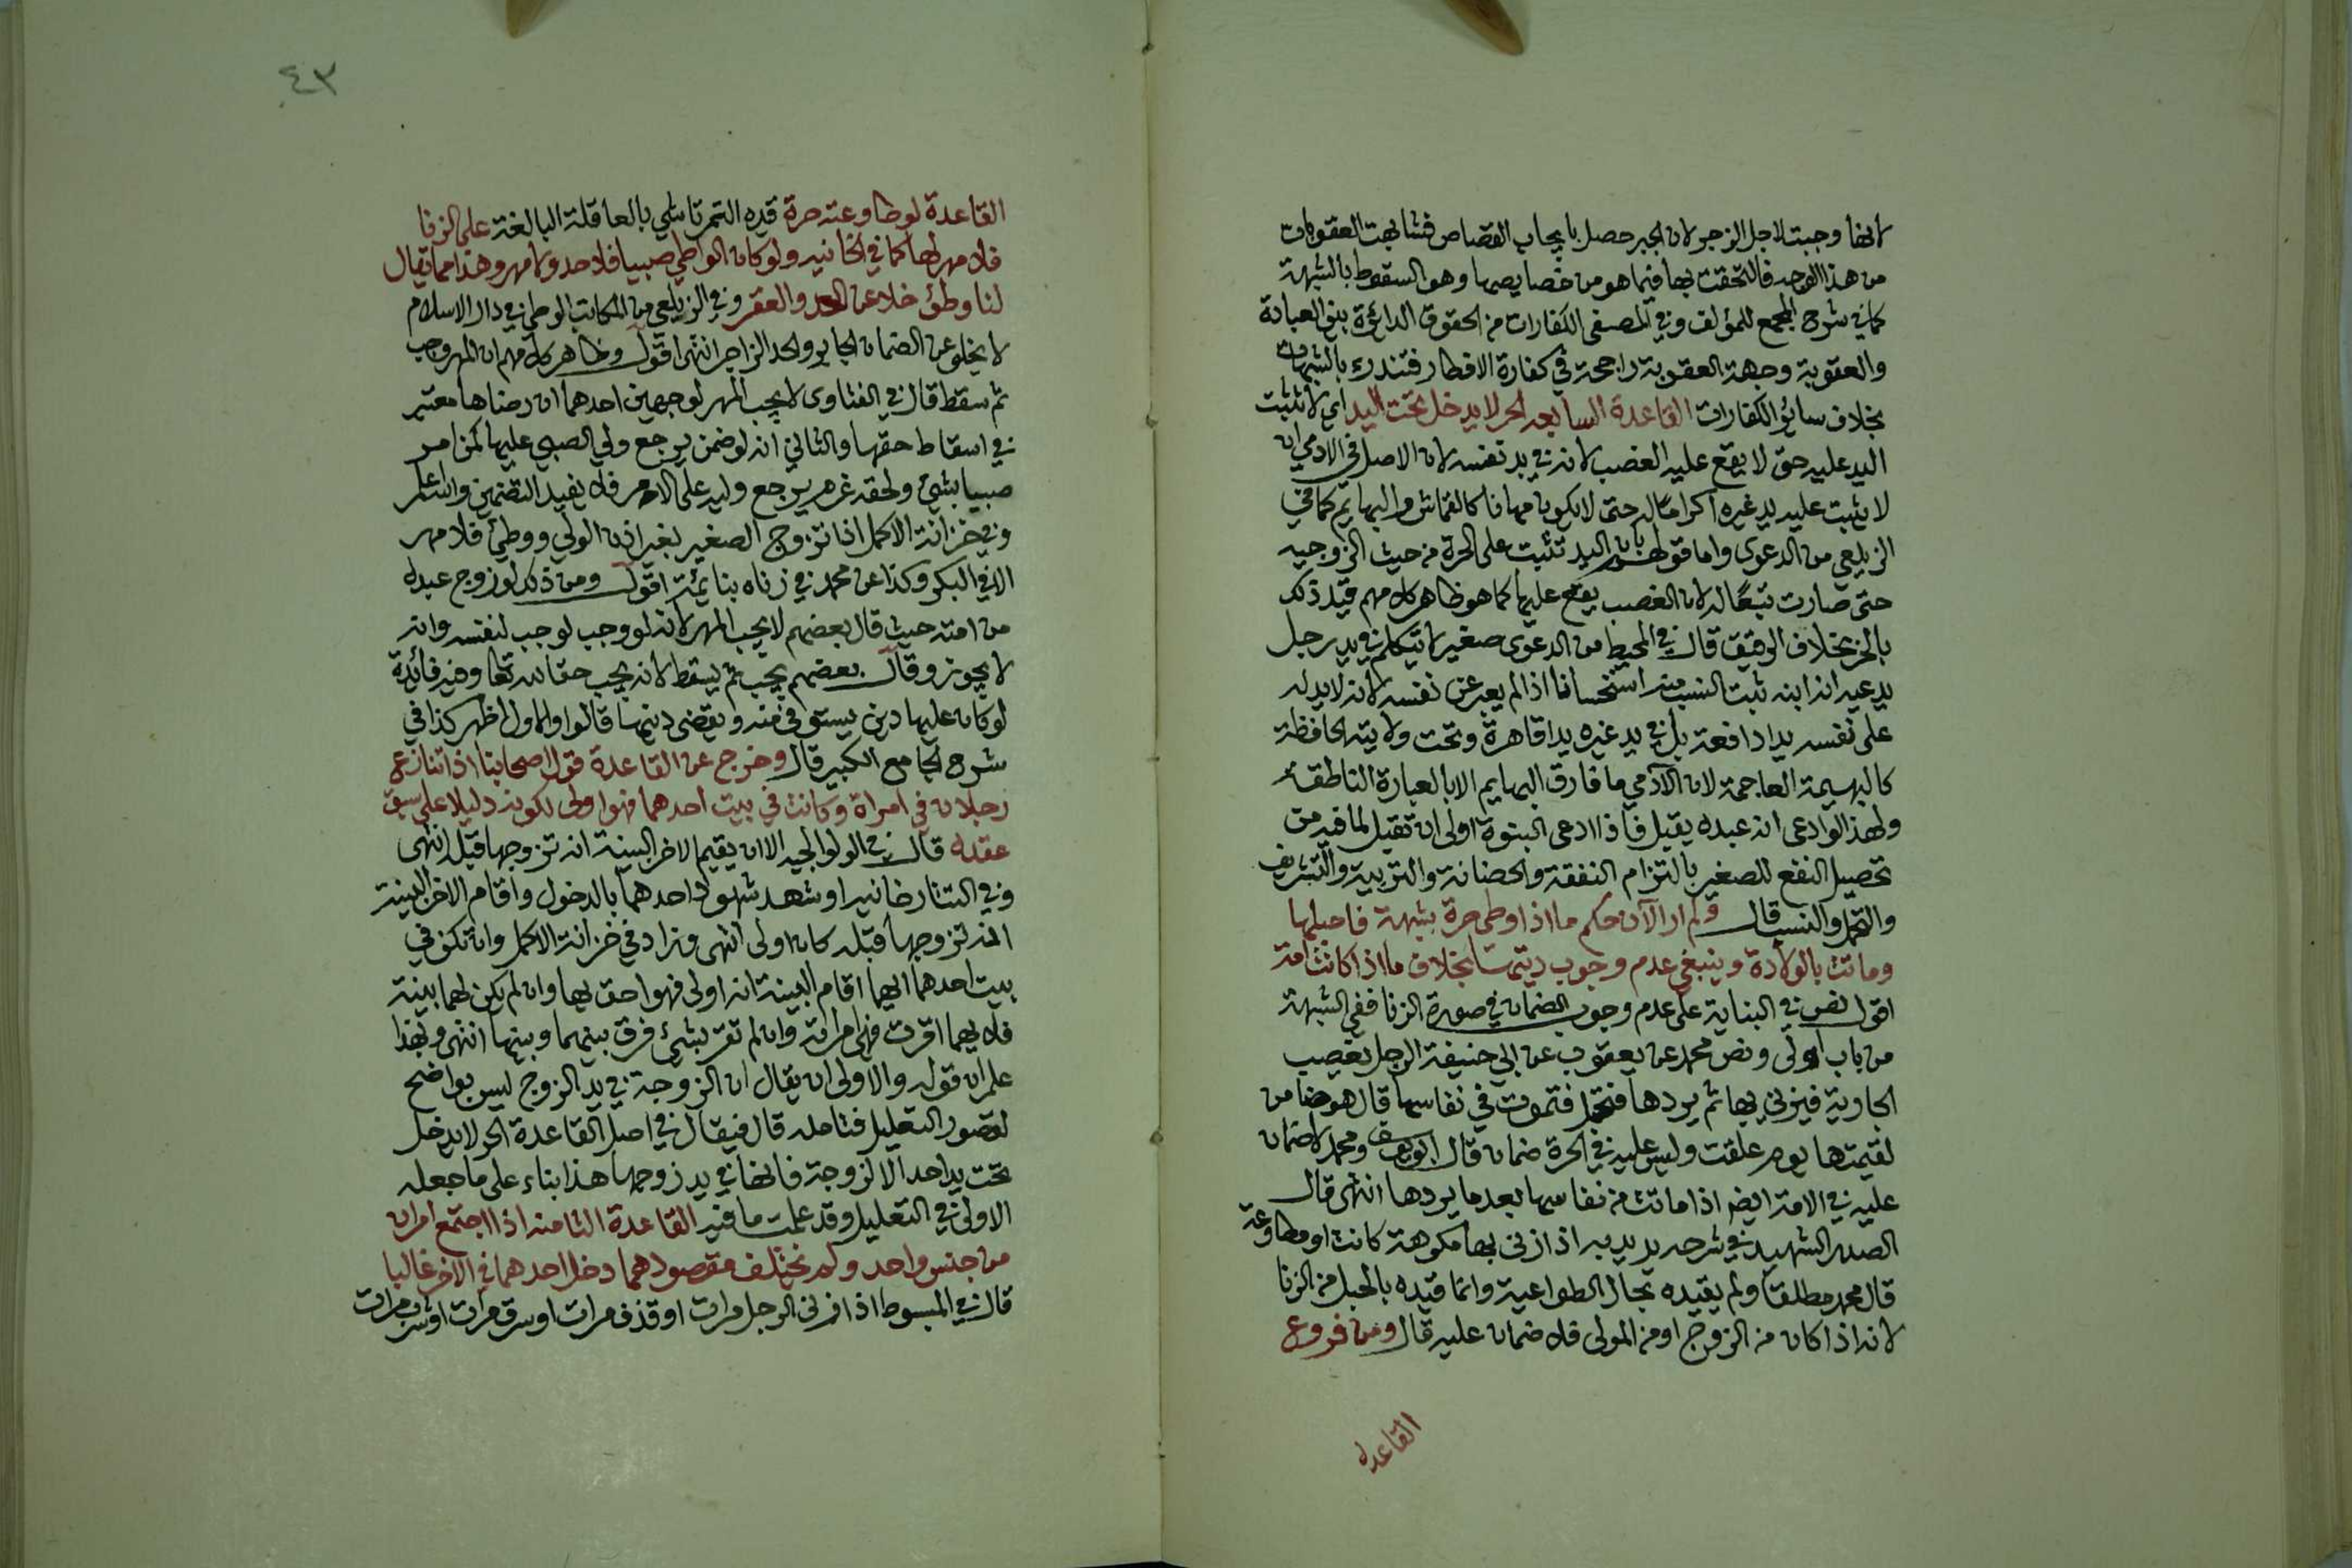 لانها وجبت لاجل الزجر لان الجبر حصل بايجاب القصاص فتشابهت العقوبات
من هذا الوجه فالتحقت بها فيما هو من خصايصها وهو السقوط بالشبهة
كما في شرح المجمع للمؤلف وفي المصفى الكفارات من الحقوق الدائرة بين العبادة
والعقوبة وجهة العقوبة راجحة في كفارة الافطار فتندرئ بالشبهات
بخلاف سائر الكفارات القاعدة السابعه الحر لا يدخل تحت اليد اي لا تثبت
اليد عليه حتى لا يقع عليه الغصب لانه في يد نفسه لان الاصل في الادمي ان
لا يثبت عليه يد غيره اكراما له حتى لا يكون مهانا كالقماش والبهايم كما في
الزيلعي من الدعوى واما قولهم بان اليد تثبت على الحرة من حيث الزوجيه
حتى صارت تبعا له لان الغصب يقع عليها كما هو ظاهر كلامهم قيد ذلك
بالحر بخلاف الرقيق قال في المحيط من الدعوى صغير لا يتكلم في يد رجل
يدعيه انه ابنه ثبت النسب منه استحسانا اذا لم يعبر عن نفسه لانه لا يد له
على نفسه يدا دافعة بل في يد غيره يدا قاهرة وتحت ولايته الحافظة
كالبهيمة العاجمة لان الآدمي ما فارق البهايم الا بالعبارة الناطقة
ولهذا لو ادعى انه عبده يقبل فاذا ادعى البنوة اولى ان تقبل لما فيه من
تحصيل النفع للصغير بالتزام النفقة والحضانة والتربية والتشريف
والتجمل والنسب قال ولم ار الآن حكم ما اذا وطى حرة بشبهة فاحبلها
وماتت بالولادة وينبغي عدم وجوب ديتها بخلاف ما اذا كانت امة
اقول نص في البناية على عدم وجوب الضمان في صورة الزنا ففي الشبهة
من باب اولى ونص محمد عن يعقوب عن ابي حنيفة الرجل يغصب
الجارية فيزني بها ثم يردها فتحبل فتموت في نفاسها قال هو ضامن
لقيمتها يوم علقت وليس عليه في الحرة ضمان قال ابو يوسف ومحمد لا ضمان
عليه في الامة ايضا اذا ماتت من نفاسها بعد ما يردها انتهى قال
الصدر الشهيد في شرحه يريد به اذا زنى بها مكرهة كانت او مطاوعة
قال محمد مطلقا ولم يقيده بحال الطواعية وانما قيده بالحبل من الزنا
لانه اذا كان من الزوج او من المولى فلا ضمان عليه قال ومن فروع
القاعده
٤٣
القاعدة لو طاوعته حرة قيده التمرتاشي بالعاقلة البالغة على الزنا
فلا مهر لها كما في الخانيه ولو كان الواطي صبيا فلا حد ولا مهر وهذا مما يقال
لنا وطئ خلا عن الحد والعقر وفي الزيلعي من المكاتب الوطي في دار الاسلام
لا يخلو عن الضمان الجابر والحد الزاجر انتهى اقول وظاهر كلامهم ان المهر وجب
ثم سقط قال في الفتاوى لا يجب المهر لوجهين احدهما ان رضاها معتبر
في اسقاط حقها والثاني انه لو ضمن يرجع ولي الصبي عليها كمن امر
صبيا بشئ ولحقه غرم يرجع وليه على الامر فلا يفيد التضمين والله اعلم
وفي خزانة الاكمل اذا تزوج الصغير بغير اذن الولي ووطئ فلا مهر
الا في البكر وكذا عن محمد في زناه بنايمة اقول ومن ذلك لو زوج عبده
من امته حيث قال بعضهم لا يجب المهر لانه لو وجب لوجب لنفسه وانه
لا يجوز وقال بعضهم يجب ثم يسقط لانه يجب حقا لله تعا وفيه فائدة
لو كان عليها دين يستوفي منه ويقضى دينها قالوا والاول اظهر كذا في
شرح الجامع الكبير قال وخرج عن القاعدة قول اصحابنا اذا تنازع
رجلان في امراة وكانت في بيت احدهما فهو اولى لكونه دليلا على سبق
عقده قال في الولوالجيه الا ان يقيما الاخر البينة انه تزوجها قبله انتهى
وفي التتارخانيه او شهد شهود احدهما بالدخول واقام الاخر البينة
انه تزوجها قبله كان اولى انتهى وزاد في خزانة الاكمل وان تكن في
بيت احدهما ايهما اقام البينة انه اولى فهو احق بها وان لم يكن لهما بينة
فلايهما اقرت فهي امراته وان لم تقر بشئ فرق بينهما وبينها انتهى وبهذا
علم ان قوله والاولى ان يقال ان الزوجة في يد الزوج ليس بواضح
لقصور التعليل فتامله قال فيقال في اصل القاعدة الحر لا يدخل
تحت يد احد الا الزوجة فانها في يد زوجها هذا بناء على ما جعله
الاولى في التعليل وقد علمت ما فيه القاعدة الثامنه اذا اجتمع امران
من جنس واحد ولم يختلف مقصودهما دخل احدهما في الآخر غالبا
قال في المبسوط اذا زنى الرجل مرات او قذف مرات او سرق مرات او شرب مرات